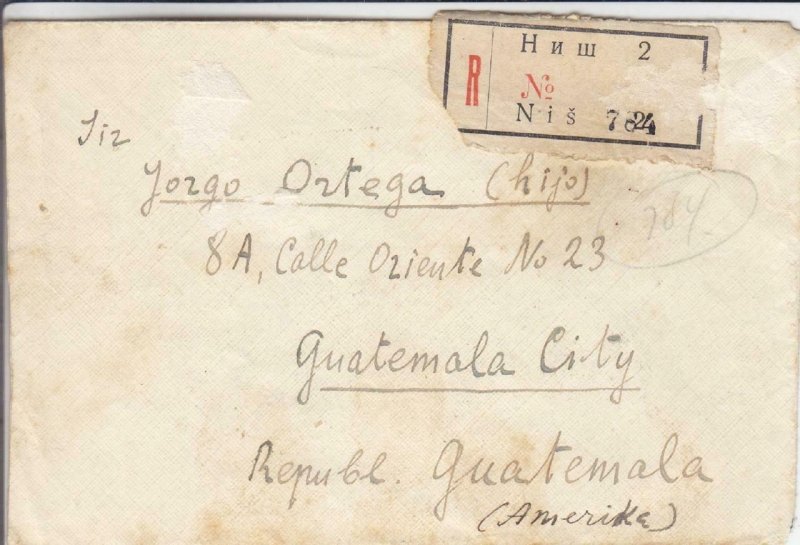 Ниш 2
R
№
Niš 784
Sir
Jorgo Ortega (hijo)
8A, Calle Oriente No 23
784
Guatemala City
Republ. Guatemala
(Amerika)